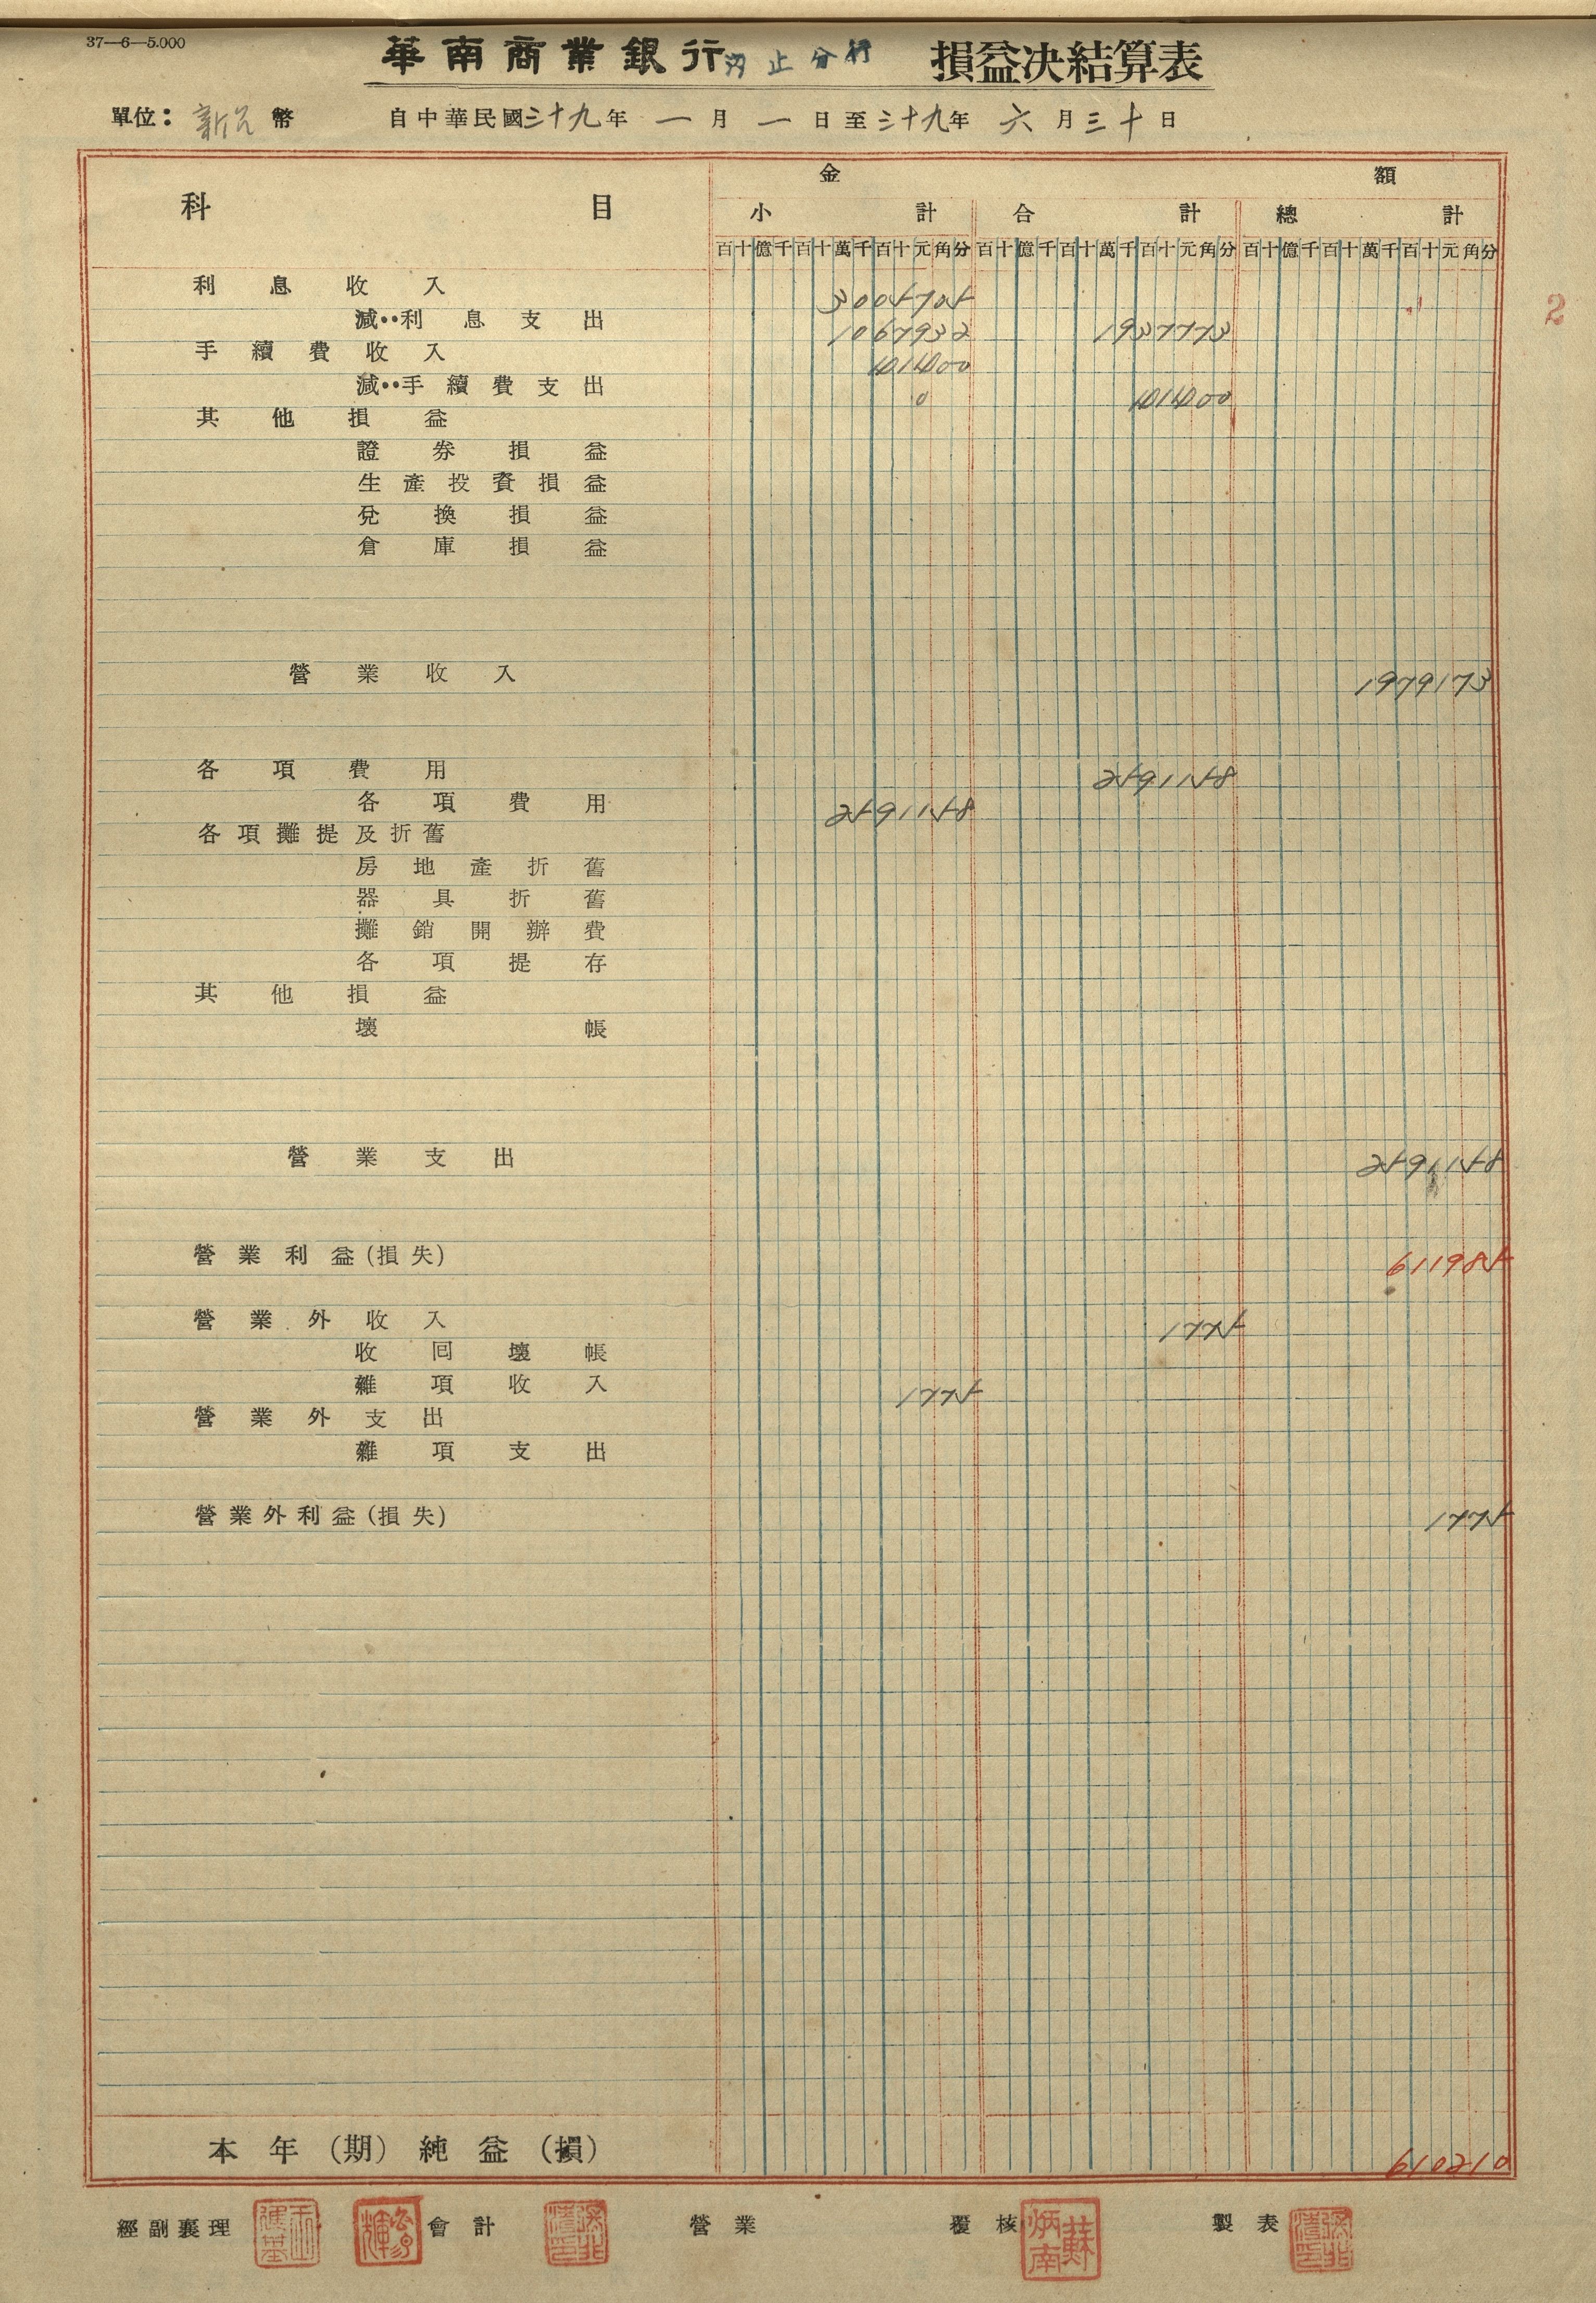 37—6—5.000
華南商業銀行汐止分行 損益決結算表
單位：新元幣 自中華民國三十九年一月一日至三十九年六月三十日
科目 金額
小計 合計 總計
百十億千百十萬千百十元角分 百十億千百十萬千百十元角分 百十億千百十萬千百十元角分
利息收入 3005705
減：利息支出 1067932 1937773
手續費收入 41400
減：手續費支出 0 41400
其他損益
證券損益
生產投資損益
兌換損益
倉庫損益
營業收入 1979173
各項費用 2591158
各項費用 2591158
各項攤提及折舊
房地產折舊
器具折舊
攤銷開辦費
各項提存
其他損益
壞帳
營業支出 2591158
營業利益(損失) 611985
營業外收入 1775
收回壞帳
雜項收入 1775
營業外支出
雜項支出
營業外利益(損失) 1775
本年(期)純益(損) 610210
2
經副襄理 會計 營業 覆核 蘇炳南 製表